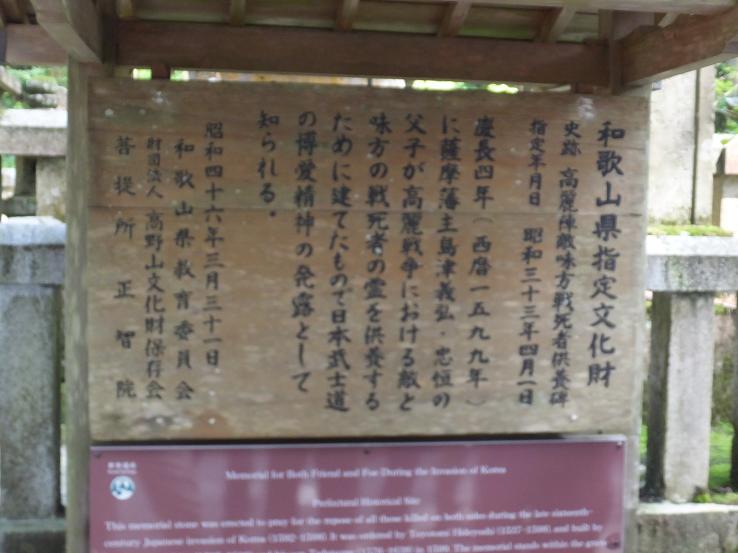 和歌山県指定文化財
史跡 高麗陣敵味方戦死者供養碑
指定年月日 昭和三十三年四月一日
慶長四年(西暦一五九九年)
に薩摩藩主島津義弘・忠恒の
父子が高麗戦争における敵と
味方の戦死者の霊を供養する
ために建てたもので日本武士道
の博愛精神の発露として
知られる。
昭和四十六年三月三十一日
和歌山県教育委員会
財団法人 高野山文化財保存会
菩提所 正智院
Memorial for Both Friend and Foe During the Invasion of Korea
Prefectural Historical Site
This memorial stone was erected to pray for the repose of all those killed on both sides during the late sixteenth-
century Japanese invasion of Korea (1592-1598). It was ordered by Toyotomi Hideyoshi (1537-1598) and built by
in 1599. The memorial stands within the